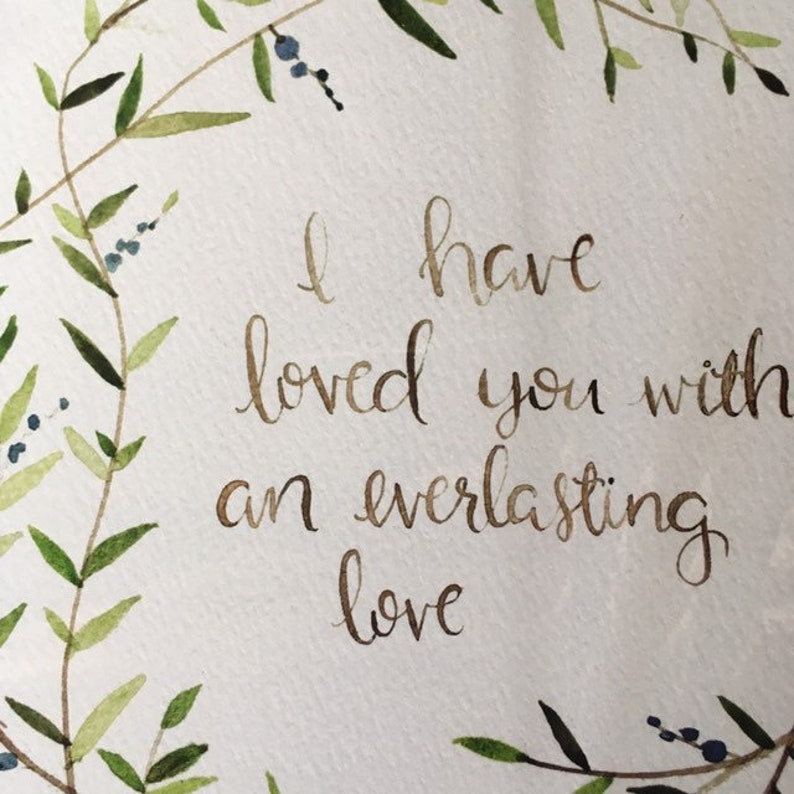 I have
loved you with
an everlasting
love